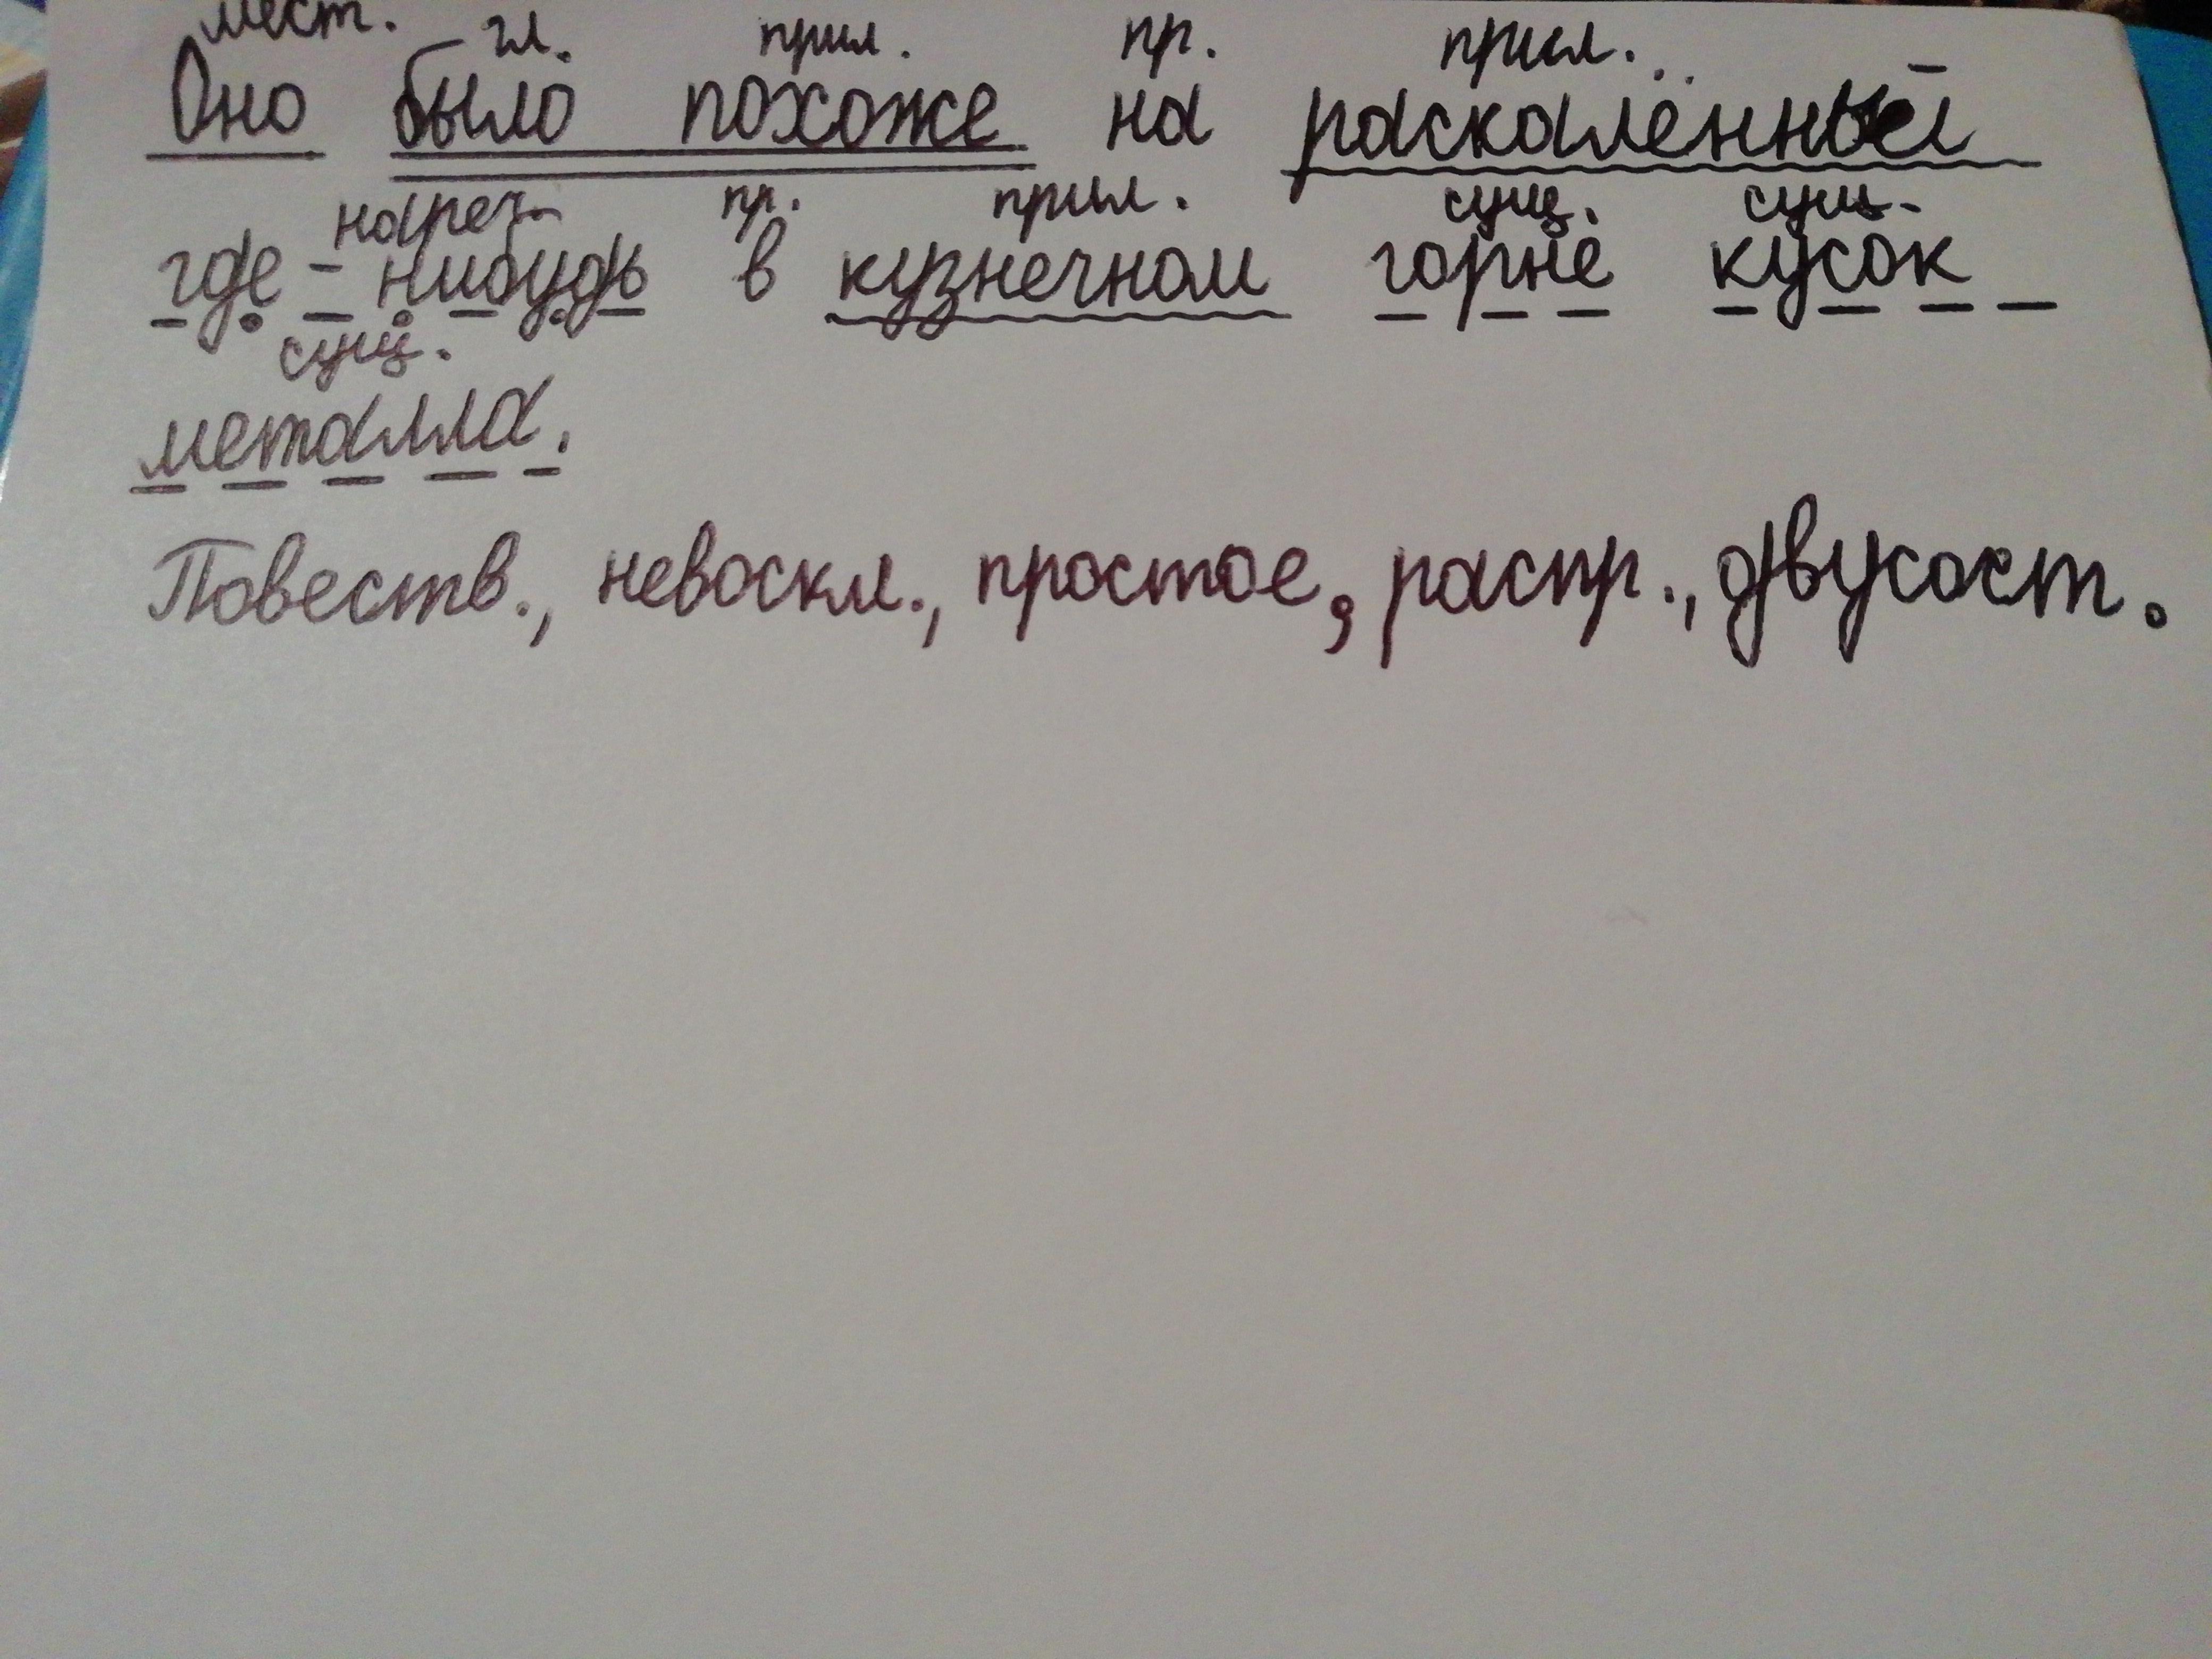 мест. гл. прил. пр. прил.
Оно было похоже на раскалённый
нареч. пр. прил. сущ. сущ.
где-нибудь в кузнечном горне кусок
сущ.
металла.
Повеств., невоскл., простое, распр., двусост.